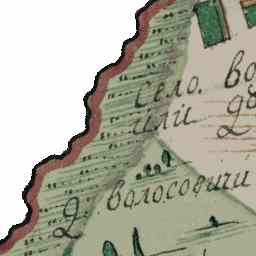 село. во
или дв
д. волосовичи